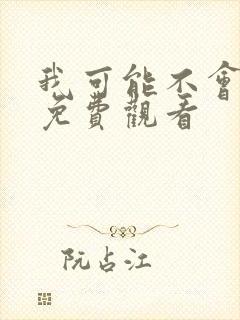 我可能不會
免費觀看
阮占江